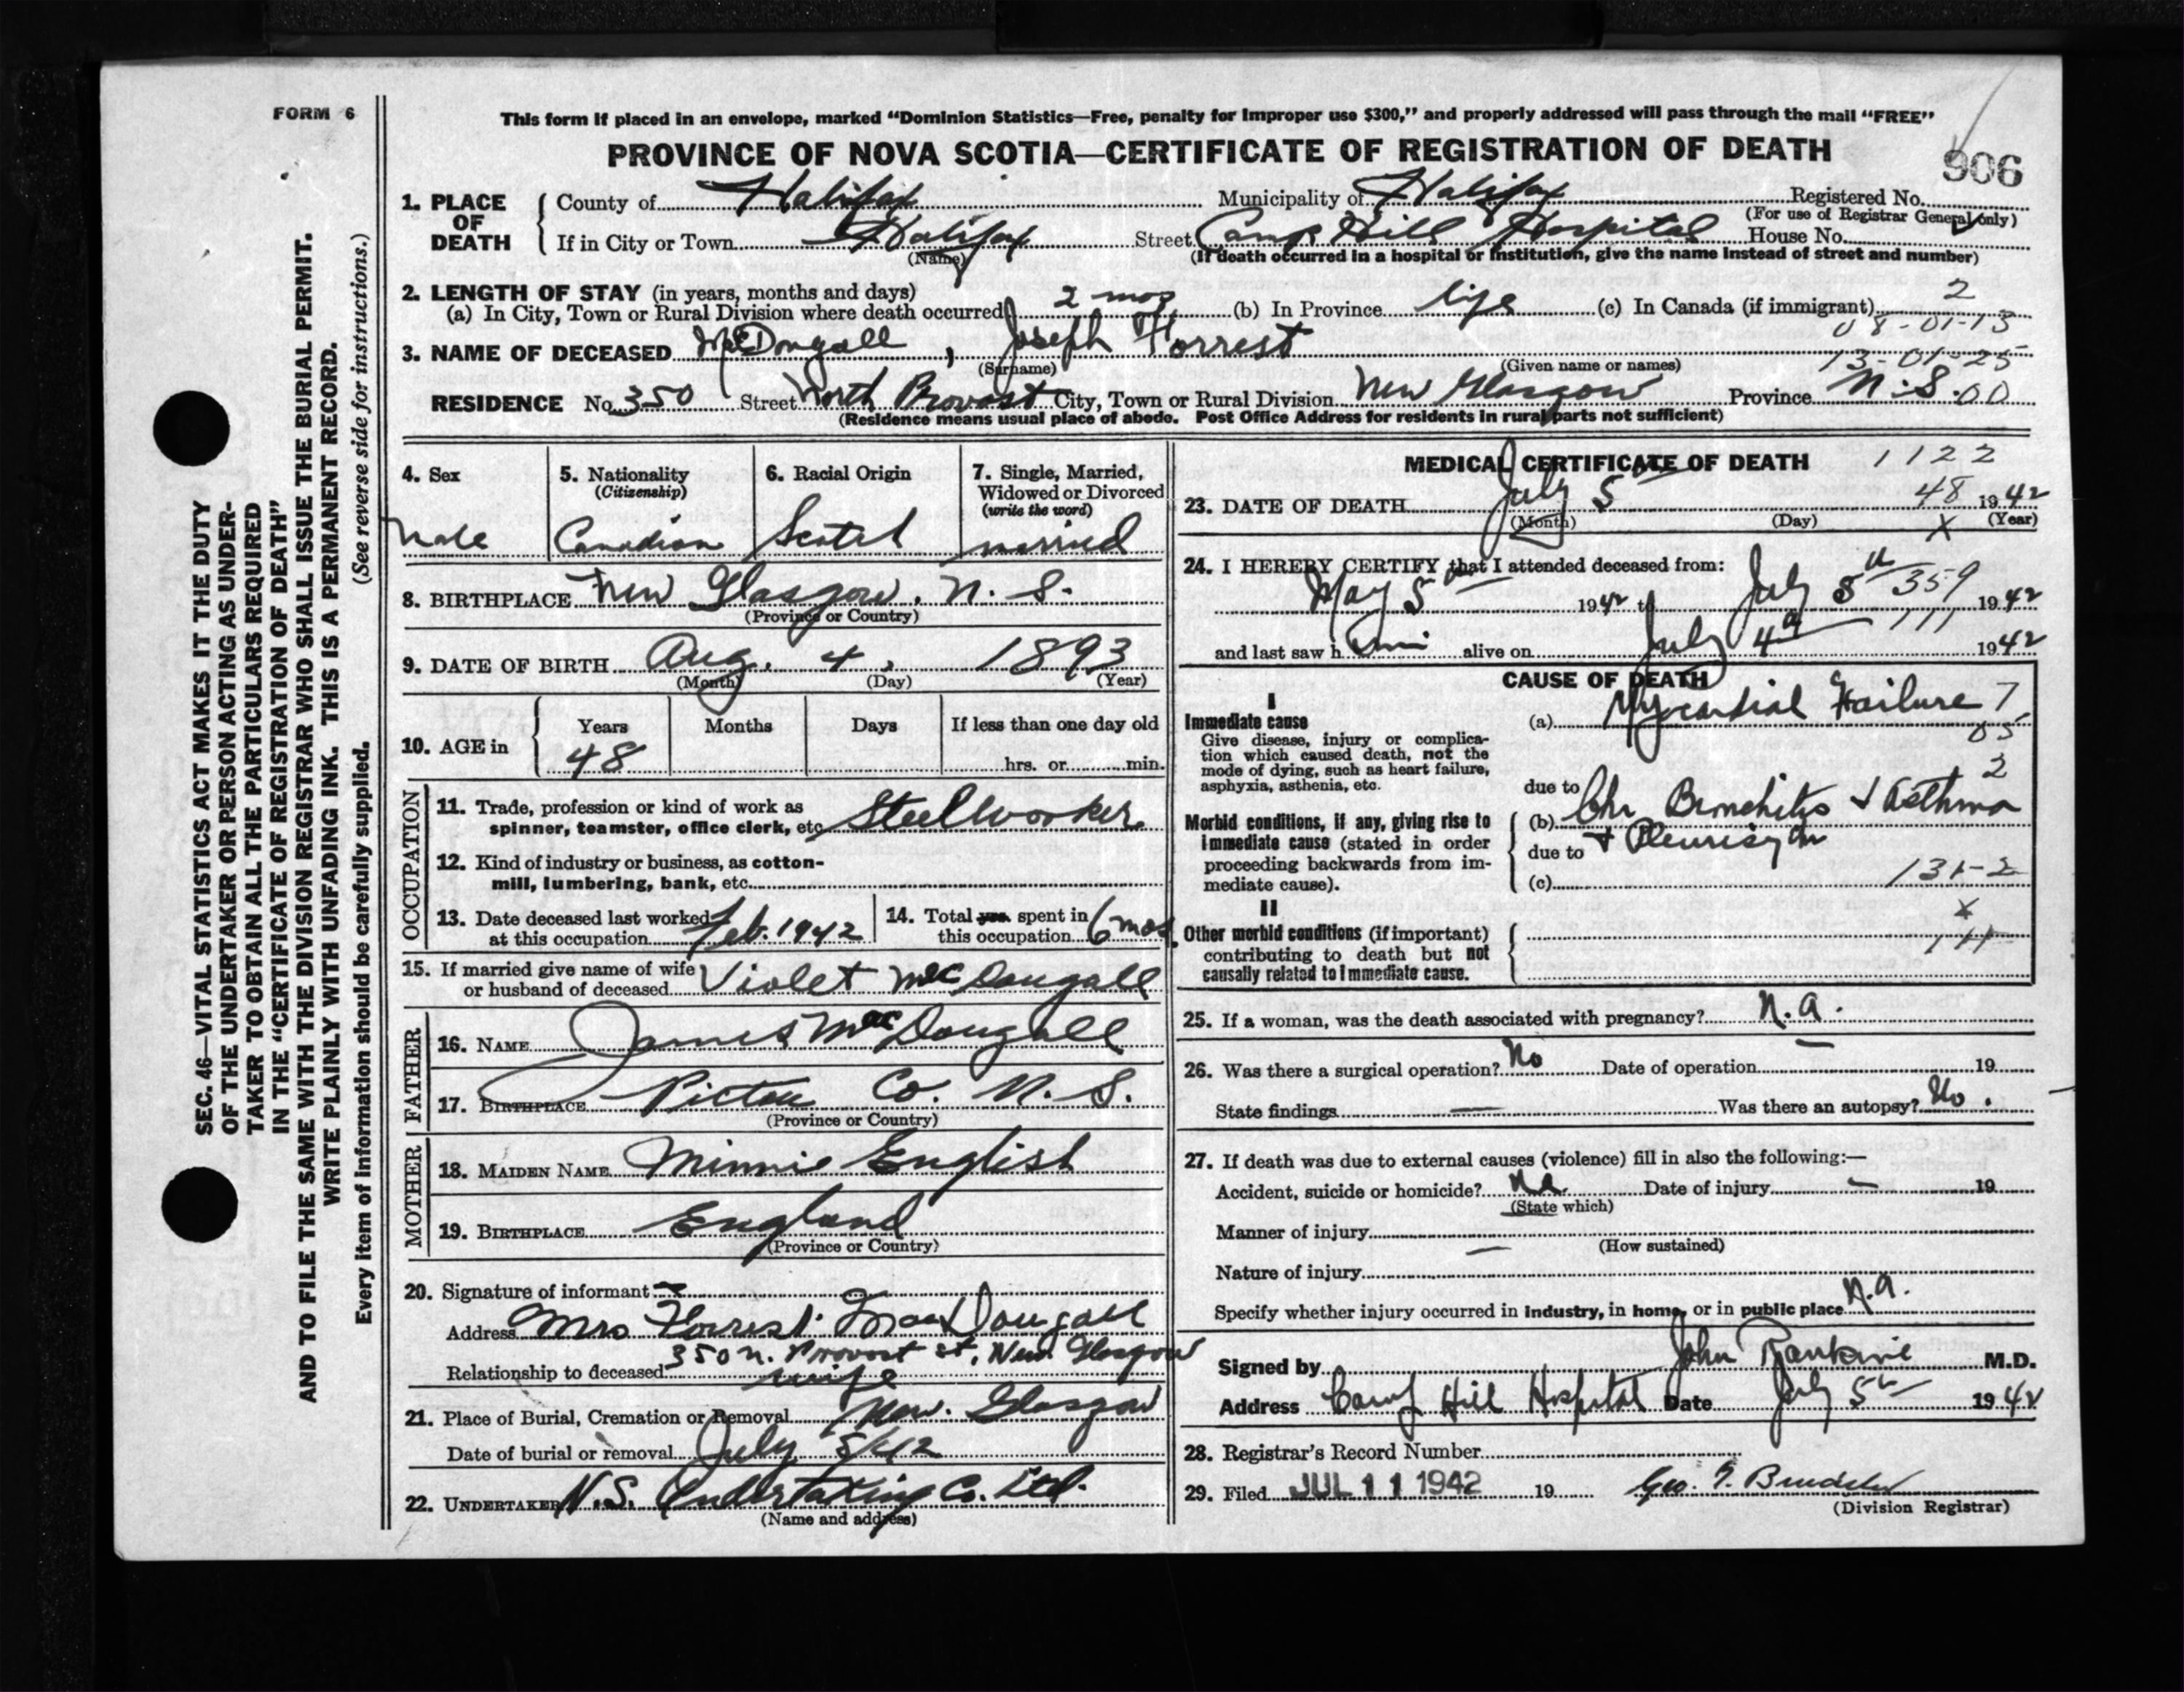 FORM 6
This form if placed in an envelope, marked "Dominion Statistics—Free, penalty for improper use $300," and properly addressed will pass through the mail "FREE"
PROVINCE OF NOVA SCOTIA—CERTIFICATE OF REGISTRATION OF DEATH
906
1. PLACE OF DEATH
County of Halifax Municipality of Halifax Registered No.
(For use of Registrar General only)
If in City or Town Halifax Street Camp Hill Hospital House No.
(Name) (If death occurred in a hospital or institution, give the name instead of street and number)
2. LENGTH OF STAY (in years, months and days)
(a) In City, Town or Rural Division where death occurred 2 mos (b) In Province life (c) In Canada (if immigrant) 2
08-01-13
3. NAME OF DECEASED MacDougall, Joseph Forrest
(Surname) (Given name or names) 13-01-25
RESIDENCE No. 350 Street North Provost City, Town or Rural Division New Glasgow Province N.S. 00
(Residence means usual place of abode. Post Office Address for residents in rural parts not sufficient)
4. Sex
Male
5. Nationality
(Citizenship)
Canadian
6. Racial Origin
Scotch
7. Single, Married, Widowed or Divorced
(write the word)
married
8. BIRTHPLACE New Glasgow, N.S.
(Province or Country)
9. DATE OF BIRTH Aug. 4, 1893
(Month) (Day) (Year)
10. AGE in Years Months Days If less than one day old
48 hrs. or min.
OCCUPATION
11. Trade, profession or kind of work as
spinner, teamster, office clerk, etc. Steelworker
12. Kind of industry or business, as cotton-
mill, lumbering, bank, etc.
13. Date deceased last worked
at this occupation Feb. 1942
14. Total yrs. spent in
this occupation 6 mos.
15. If married give name of wife
or husband of deceased Violet MacDougall
FATHER
16. NAME James MacDougall
17. BIRTHPLACE Pictou Co. N.S.
(Province or Country)
MOTHER
18. MAIDEN NAME Minnie English
19. BIRTHPLACE England
(Province or Country)
20. Signature of informant
Address Mrs Forrest MacDougall
350 N. Provost St, New Glasgow
Relationship to deceased wife
21. Place of Burial, Cremation or Removal New Glasgow
Date of burial or removal July 5/42
22. UNDERTAKER N.S. Undertaking Co. Ltd.
(Name and address)
MEDICAL CERTIFICATE OF DEATH 1122
23. DATE OF DEATH July 5th 48 1942
(Month) (Day) X (Year)
24. I HEREBY CERTIFY that I attended deceased from:
May 5th 1942 to July 5th 359 1942
and last saw him alive on July 4th 111 1942
CAUSE OF DEATH
I
Immediate cause
Give disease, injury or complica-
tion which caused death, not the
mode of dying, such as heart failure,
asphyxia, asthenia, etc.
(a) Myocardial Failure 7
05
2
due to
Morbid conditions, if any, giving rise to
immediate cause (stated in order
proceeding backwards from im-
mediate cause).
(b) Chr Bronchitis & Asthma
due to & Pleurisy
(c)
II
Other morbid conditions (if important)
contributing to death but not
causally related to immediate cause.
X
111
25. If a woman, was the death associated with pregnancy? N.a.
26. Was there a surgical operation? No Date of operation — 19
State findings — Was there an autopsy? No.
27. If death was due to external causes (violence) fill in also the following:—
Accident, suicide or homicide? Na Date of injury — 19
(State which)
Manner of injury
— (How sustained)
Nature of injury
Specify whether injury occurred in industry, in home, or in public place N.a.
Signed by John Rankine M.D.
Address Camp Hill Hospital Date July 5th 1942
28. Registrar's Record Number
29. Filed JUL 11 1942 19
(Division Registrar)
SEC. 46—VITAL STATISTICS ACT MAKES IT THE DUTY
OF THE UNDERTAKER OR PERSON ACTING AS UNDER-
TAKER TO OBTAIN ALL THE PARTICULARS REQUIRED
IN THE "CERTIFICATE OF REGISTRATION OF DEATH"
AND TO FILE THE SAME WITH THE DIVISION REGISTRAR WHO SHALL ISSUE THE BURIAL PERMIT.
WRITE PLAINLY WITH UNFADING INK. THIS IS A PERMANENT RECORD.
Every item of information should be carefully supplied. (See reverse side for instructions.)